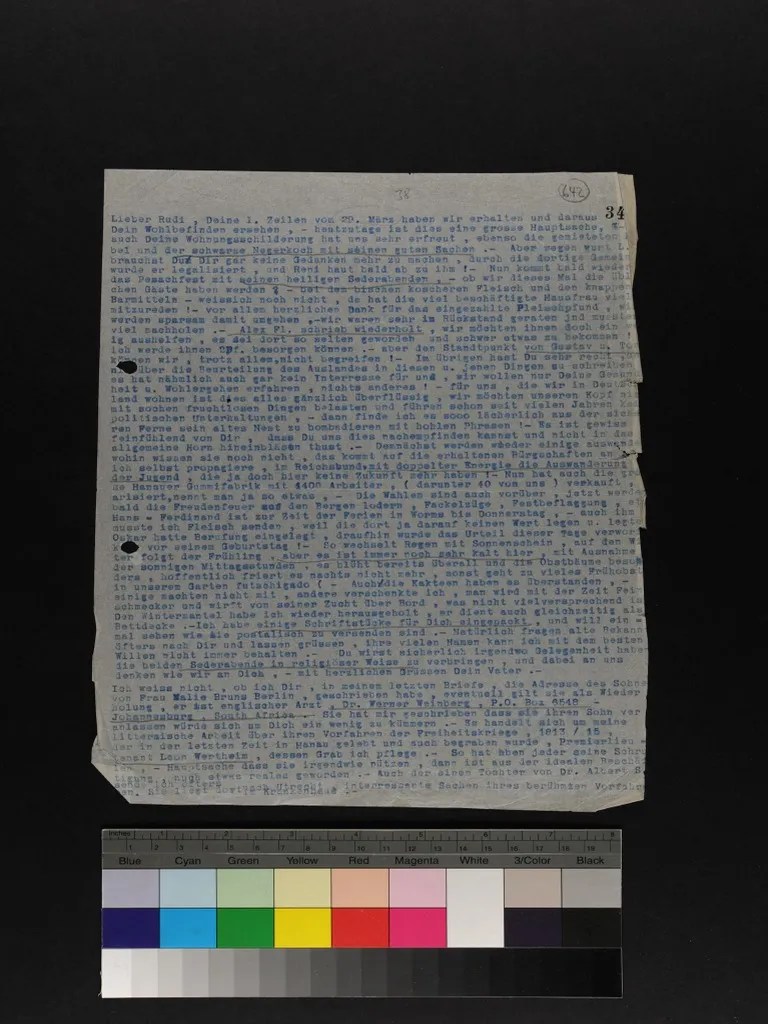 38
642
34
Lieber Rudi , Deine l. Zeilen vom 29. März haben wir erhalten und daraus
Dein Wohlbefinden ersehen , - heutzutage ist dies eine grosse Hauptsache,
auch Deine Wohnungsschilderung hat uns sehr erfreut , ebenso die gemieteten
bel und der schwarze Negerkoch mit seinen guten Sachen .- Aber wegen
brauchst Du Dir gar keine Gedanken mehr zu machen , durch die dortige
wurde er legalisiert , und Reni haut bald ab zu ihm !- Nun kommt bald wieder
das Pesachfest mit seinen heiligen Sederabenden , - ob wir dieses Mal die
chen Gäste haben werden ? - bei dem bischen koscheren Fleisch und den knappen
Barmitteln - weissich noch nicht , da hat die viel beschäftigte Hausfrau
mitzureden !- vor allem herzlichen Dank für das eingezahlte Fleischpfund ,
werden sparsam damit umgehen ,-wir waren sehr im Rückstand geraten und
viel nachholen .- Alex Fl. schrieb wiederholt , wir möchten ihnen doch ein
ig aushelfen , es sei dort so selten geworden und schwer etwas zu bekommen
ich werde ihnen 2pf. besorgen können .- aber den Standpunkt von Gustav u.
können wir , trotz allem,nicht begreifen !- Im übrigen hast Du sehr recht
über die Beurteilung des Auslandes in diesen u. jenen Dingen zu schreiben
es hat nähmlich auch gar kein Interresse für uns , wir wollen nur Deine
heit u. Wohlergehen erfahren , nichts anderes !- für uns , die wir in
land wohnen ist dies alles gänzlich überflüssig , wir möchten unseren Kopf
mit sochen fruchtlosen Dingen belasten und führen schon seit vielen Jahren
politischen Unterhaltungen , - dann finde ich es sooo lächerlich aus der
ren Ferne sein altes Nest zu bombadieren mit hohlen Phrasen !- Es ist gewiss
feinfühlend von Dir , dass Du uns dies nachempfinden kannst und nicht in das
allgemeine Horn hineinblasen thust .- Demnächst werden wieder einige
wohin wissen sie noch nicht , das kommt auf die erhaltenen Bürgschaften an
ich selbst propagiere , im Reichsbund,mit doppelter Energie die Auswanderung
der Jugend , die ja doch hier keine Zukunft mehr haben !- Nun hat auch die
se Hanauer Gummifabrik mit 1400 Arbeiter , ( darunter 40 von uns ) verkauft
arisiert,nennt man ja so etwas . - Die Wahlen sind auch vorüber , jetzt
bald die Freudenfeuer auf den Bergen lodern , Fackelzüge , Festbeflaggung ,
Hans - Ferdinand ist zur Zeit der Ferien in Worms bis Donnerstag , - auch
musste ich Fleisch senden , weil die dort ja darauf keinen Wert legen u.
Oskar hatte Berufung eingelegt , draufhin wurde das Urteil dieser Tage
vor seinem Geburtstag !- So wechselt Regen mit Sonnenschein , auf den
ter folgt der Frühling , aber es ist immer noch sehr kalt hier , mit Ausnahme
der sonnigen Mittagsstunden , es blüht bereits überall und die Obstbäume
ders , hoffentlich friert es nachts nicht mehr , sonst geht zu vieles Frühobst
in unserem Garten futschigado (- Auch die Kakteen haben es überstanden , -
einige machten nicht mit , andere verschenkte ich , man wird mit der Zeit
schmecker und wirft von seiner Zucht über Bord , was nicht vielversprechend
Den Wintermantel habe ich wieder herausgeholt , er dient auch gleichzeitig
Bettdecke .-Ich habe einige Schriftstücke für Dich eingepackt , und will
mal sehen wie als postalisch zu versenden sind .- Natürlich fragen alte
öfters nach Dir und lassen grüssen , ihre vielen Namen kann ich mit dem besten
Willen nicht immer behalten .- Du wirst sicherlich irgendwo Gelegenheit haben
die beiden Sederabende in religiöser Weise zu verbringen , und dabei an uns
denken wie wir an Dich , - mit herzlichen Grüssen Dein Vater .-
Ich weiss nicht , ob ich Dir , in meinem letzten Briefe , die Adresse des Sohnes
von Frau Malie Bruns Berlin , geschrieben habe , eventuell gilt sie als Wieder
holung , er ist englischer Arzt , Dr. Werner Weinberg , P.O. Box 6548 -
Johannesburg , South Africa .- Sie hat mir geschrieben dass sie ihren Sohn ver
anlassen würde sich um Dich ein wenig zu kümmern .- Es handelt sich um meine
litterarische Arbeit über ihren Vorfahren der Freiheitskriege , 1813 / 15 ,
der in der letzten Zeit in Hanau gelebt und auch begraben wurde , Premierlieu
tenant Leon Wertheim , dessen Grab ich pflege .- So hat eben jeder seine
, - Hauptsache dass sie irgendwie nützen , dann ist aus der idealen
tigung , auch etwas reales geworden .- Auch der einen Tochter von Dr. Albert S.
interressante Sachen ihres berühmten